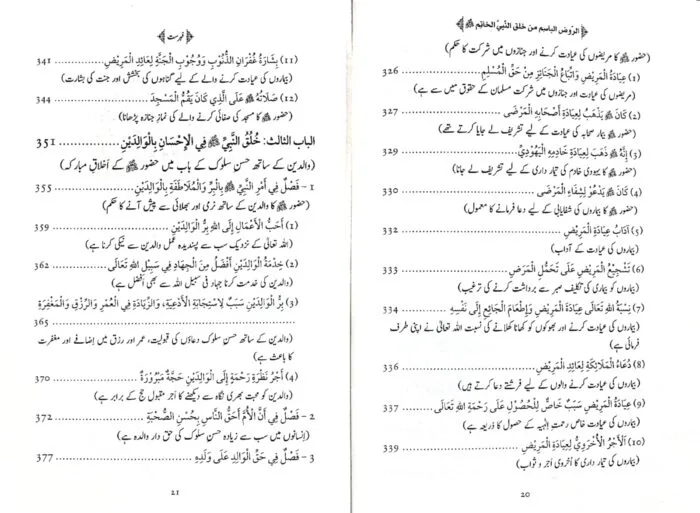 الرّوض الباسم من خلق النّبيّ الخاتم ﷺ
(حضور ﷺ کا مریضوں کی عیادت کرنے اور جنازوں میں شرکت کا حکم)
(1) عِيَادَةُ الْمَرِيْضِ وَاتِّبَاعُ الْجَنَائِزِ مِنْ حَقِّ الْمُسْلِمِ ........ 326
(مریضوں کی عیادت کرنے اور جنازوں میں شرکت مسلمان کے حقوق میں سے ہے)
(2) كَانَ ﷺ يَذْهَبُ لِعِيَادَةِ أَصْحَابِهِ الْمَرْضَى ........ 327
(حضور ﷺ بیمار صحابہ کی عیادت کے لیے تشریف لے جایا کرتے تھے)
(3) إِنَّهُ ﷺ ذَهَبَ لِعِيَادَةِ خَادِمِهِ الْيَهُوْدِيِّ ........ 329
(حضور ﷺ کا یہودی خادم کی تیمار داری کے لیے تشریف لے جانا)
(4) كَانَ ﷺ يَدْعُوْ لِشِفَاءِ الْمَرْضَى ........ 330
(حضور ﷺ کا بیماروں کی شفایابی کے لیے دعا فرمانے کا معمول)
(5) آدَابُ عِيَادَةِ الْمَرِيْضِ ........ 332
(بیماروں کی عیادت کے آداب)
(6) تَشْجِيْعُ الْمَرِيْضِ عَلَى تَحَمُّلِ الْمَرَضِ ........ 333
(بیماروں کو بیماری کی تکلیف صبر سے برداشت کرنے کی ترغیب)
(7) نِسْبَةُ اللهِ تَعَالَى عِيَادَةَ الْمَرِيْضِ وَإِطْعَامَ الْجَائِعِ إِلَى نَفْسِهِ ........ 334
(بیماروں کی عیادت کرنے اور بھوکوں کو کھانا کھلانے کی نسبت اللہ تعالیٰ نے اپنی طرف
فرمائی ہے)
(8) دُعَاءُ الْمَلَائِكَةِ لِعَائِدِ الْمَرِيْضِ ........ 336
(بیماروں کی عیادت کرنے والوں کے لیے فرشتے دعا کرتے ہیں)
(9) عِيَادَةُ الْمَرِيْضِ سَبَبٌ خَاصٌّ لِلْحُصُوْلِ عَلَى رَحْمَةِ اللهِ تَعَالَى ........ 337
(بیماروں کی عیادت خاص رحمتِ الٰہیہ کے حصول کا ذریعہ ہے)
(10) اَلْأَجْرُ الْأُخْرَوِيُّ لِعِيَادَةِ الْمَرِيْضِ ........ 339
(بیماروں کی تیمار داری کا اُخروی اَجر و ثواب)
20
فہرست
(11) بِشَارَةُ غُفْرَانِ الذُّنُوْبِ وَوُجُوْبِ الْجَنَّةِ لِعَائِدِ الْمَرِيْضِ ........ 341
(بیماروں کی عیادت کرنے والے کے لیے گناہوں کی بخشش اور جنت کی بشارت)
(12) صَلَاتُهُ ﷺ عَلَى الَّذِي كَانَ يَقُمُّ الْمَسْجِدَ ........ 344
(حضور ﷺ کا مسجد کی صفائی کرنے والے کی نمازِ جنازہ پڑھانا)
الباب الثالث: خُلُقُ النَّبِيِّ ﷺ فِي الْإِحْسَانِ بِالْوَالِدَيْنِ ........ 351
(والدین کے ساتھ حسنِ سلوک کے باب میں حضور ﷺ کے اَخلاقِ مبارکہ)
1 - فَصْلٌ فِي أَمْرِ النَّبِيِّ ﷺ بِالْبِرِّ وَالْمُلَاطَفَةِ بِالْوَالِدَيْنِ ........ 355
(حضور ﷺ کا والدین کے ساتھ نرمی اور بھلائی سے پیش آنے کا حکم)
(1) أَحَبُّ الْأَعْمَالِ إِلَى اللهِ بِرُّ الْوَالِدَيْنِ ........ 359
(اللہ تعالیٰ کے نزدیک سب سے پسندیدہ عمل والدین سے نیکی کرنا ہے)
(2) خِدْمَةُ الْوَالِدَيْنِ أَفْضَلُ مِنَ الْجِهَادِ فِي سَبِيْلِ اللهِ تَعَالَى ........ 362
(والدین کی خدمت کرنا جہاد فی سبیل اللہ سے بھی اَفضل ہے)
(3) بِرُّ الْوَالِدَيْنِ سَبَبٌ لِاسْتِجَابَةِ الْأَدْعِيَةِ، وَالزِّيَادَةِ فِي الْعُمْرِ وَالرِّزْقِ وَالْمَغْفِرَةِ
........ 365
(والدین کے ساتھ حسن سلوک دعاؤں کی قبولیت، عمر اور رزق میں اِضافے اور مغفرت
کا باعث ہے)
(4) أَجْرُ نَظْرَةِ رَحْمَةٍ إِلَى الْوَالِدَيْنِ حَجَّةٌ مَبْرُوْرَةٌ ........ 370
(والدین کو محبت بھری نگاہ سے دیکھنے کا اَجر مقبول حج کے برابر ہے)
2 - فَصْلٌ فِي أَنَّ الْأُمَّ أَحَقُّ النَّاسِ بِحُسْنِ الصُّحْبَةِ ........ 372
(اِنسانوں میں سب سے زیادہ حسنِ سلوک کی حق دار والدہ ہے)
3 - فَصْلٌ فِي حَقِّ الْوَالِدِ عَلَى وَلَدِهِ ........ 377
21